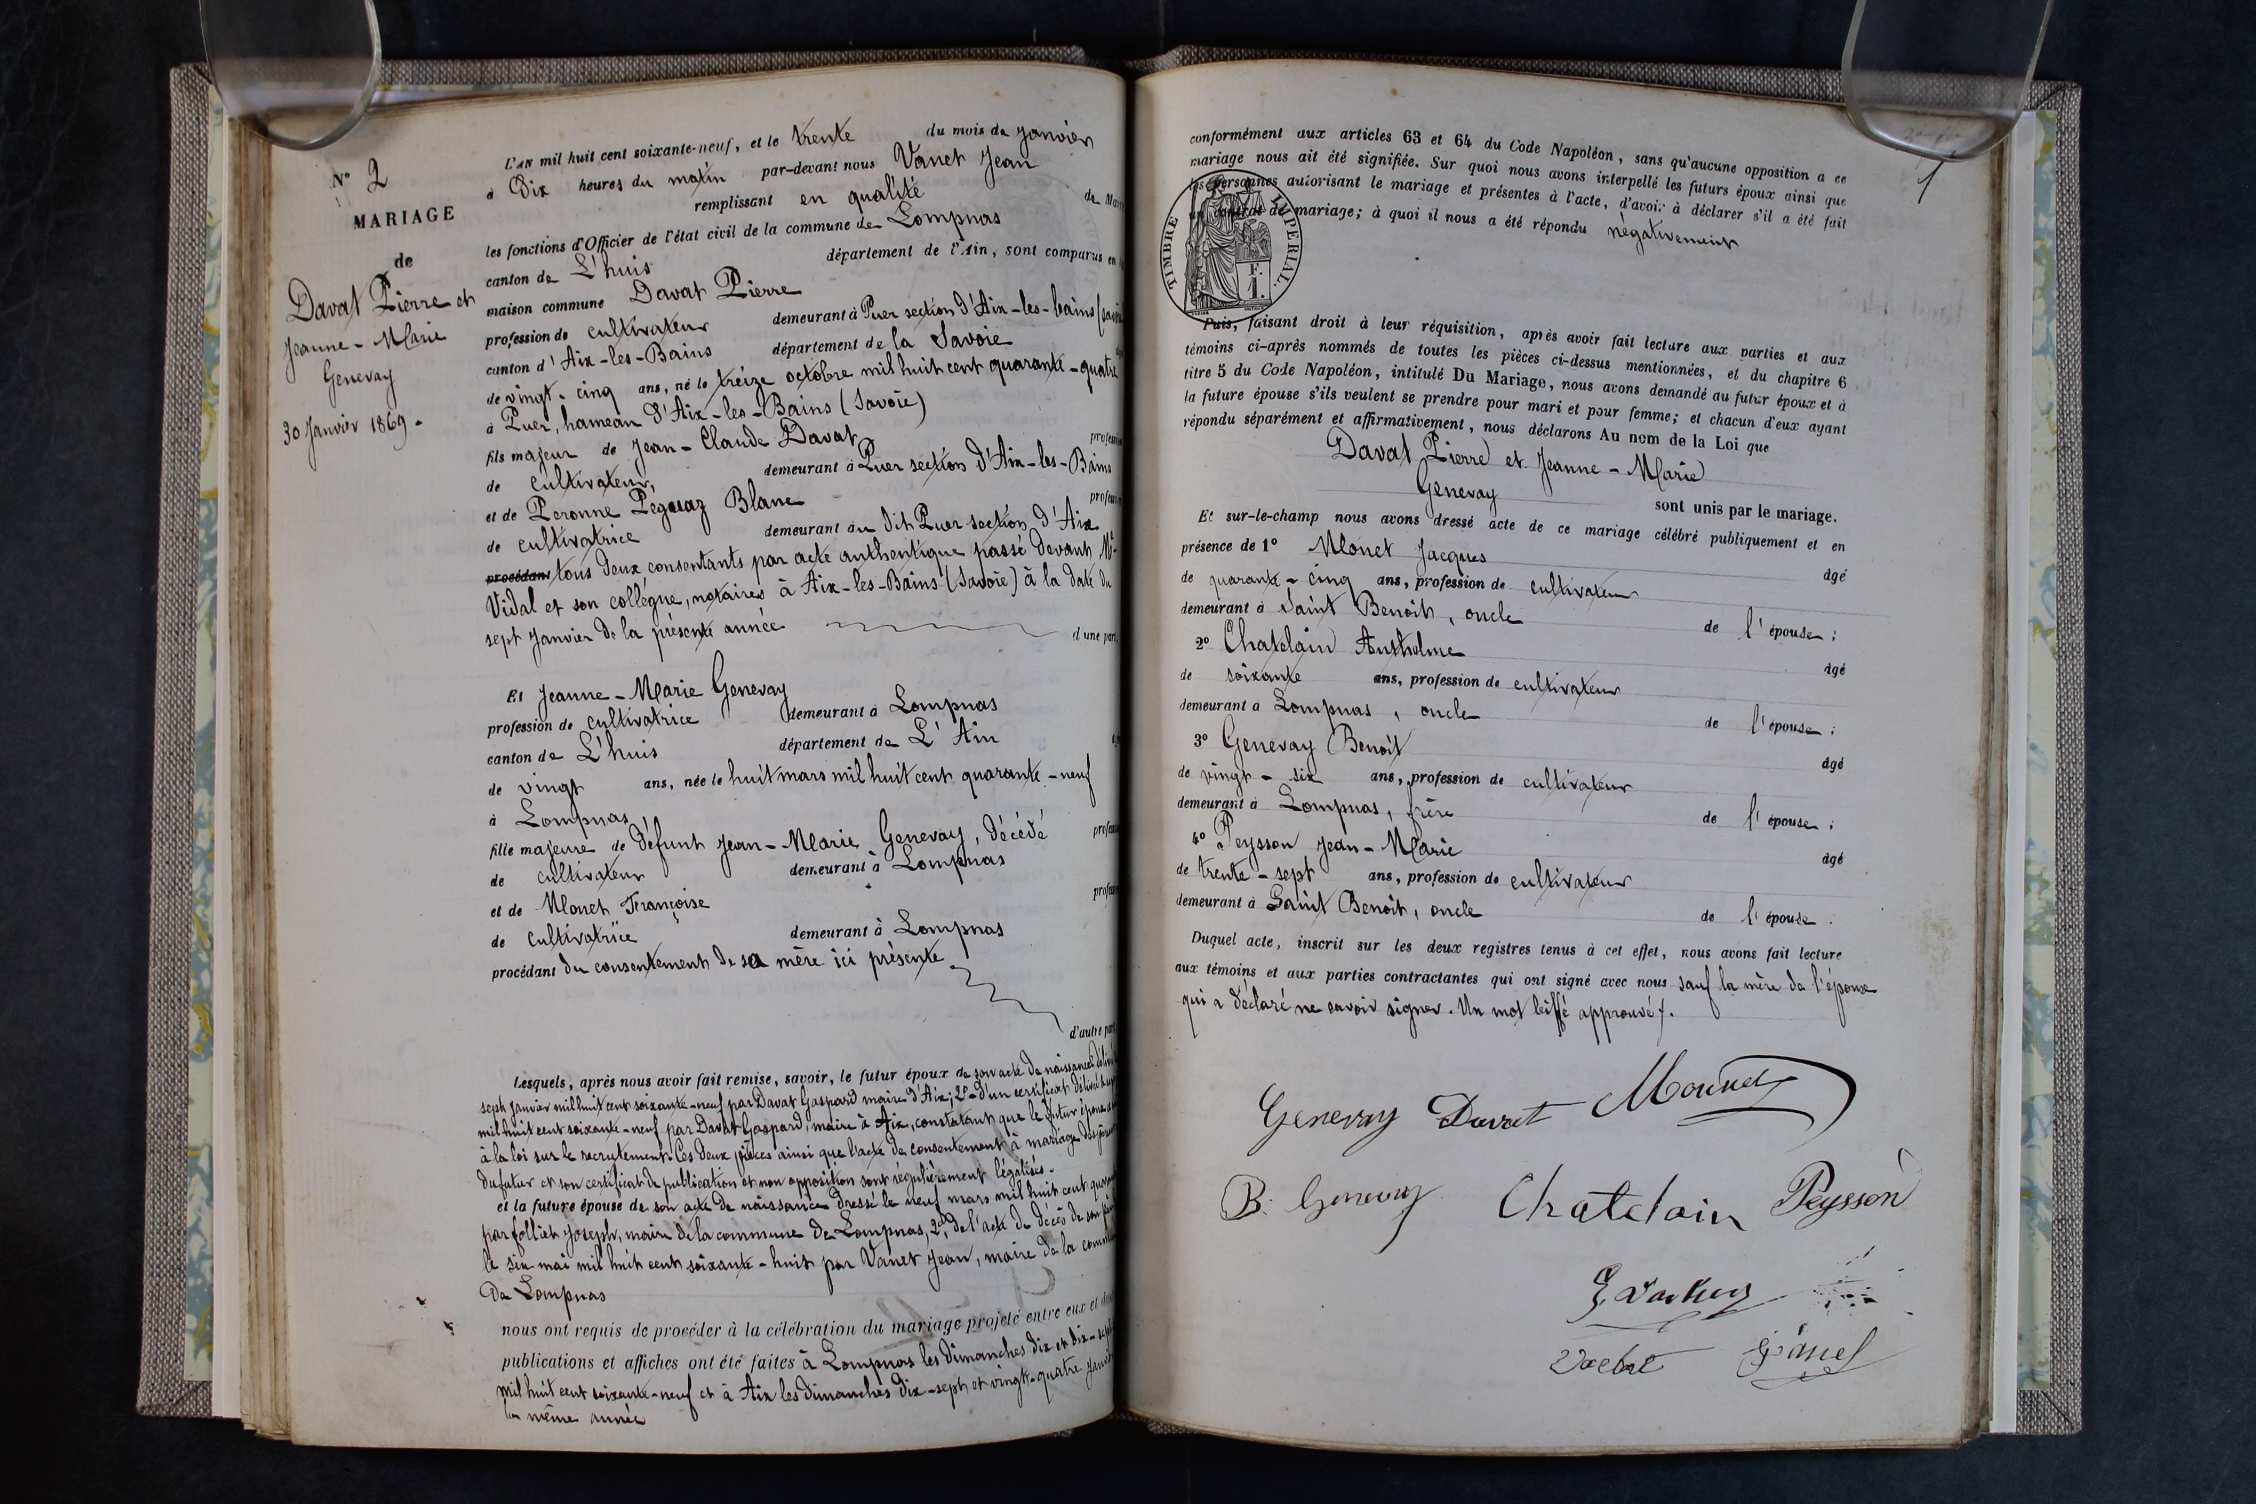 N° 2
MARIAGE
de
Davat Pierre et
Jeanne-Marie
Genevay
30 Janvier 1869.
L'AN mil huit cent soixante-neuf, et le trente du mois de Janvier
à Dix heures du matin par-devant nous Vanet Jean
remplissant en qualité de Mai
les fonctions d'Officier de l'état civil de la commune de Lompnas
canton de L'huis département de l'Ain, sont comparus en
maison commune Davat Pierre
profession de cultivateur demeurant à Puer section d'Aix-les-bains
canton d'Aix-les-Bains département de la Savoie
de vingt-cinq ans, né le treize octobre mil huit cent quarante-quatre
à Puer, hameau d'Aix-les-Bains (Savoie)
fils majeur de Jean-Claude Davat profession
de cultivateur, demeurant à Puer section d'Aix-les-Bains
et de Peronne Pégouaz Blanc profession
de cultivatrice demeurant au dit Puer section d'Aix
procédant tous deux consentants par acte authentique passé devant Me
Vidal et son collègue, notaires à Aix-les-Bains (Savoie) à la date du
sept Janvier de la présente année d'une part,
Et Jeanne-Marie Genevay
profession de cultivatrice demeurant à Lompnas
canton de L'huis département de L'Ain
de vingt ans, née le huit mars mil huit cent quarante-neuf
à Lompnas
fille majeure de défunt Jean-Marie Genevay, décédé profession
de cultivateur demeurant à Lompnas
et de Monet Françoise profession
de cultivatrice demeurant à Lompnas
procédant du consentement de sa mère ici présente
d'autre part
Lesquels, après nous avoir fait remise, savoir, le futur époux de son acte de naissance
sept janvier mil huit cent soixante-neuf par Davat Gaspard maire d'Aix; 2° d'un certificat délivré
mil huit cent soixante-neuf par Davat Gaspard, maire à Aix, constatant que le futur époux a
à la loi sur le recrutement. Ces deux pièces ainsi que l'acte de consentement à mariage des
du futur et son certificat de publication et non opposition sont régulièrement légalisés.
et la future épouse de son acte de naissance dressé le neuf mars mil huit cent
par folliet Joseph, maire de la commune de Lompnas, 2° de l'acte de décès de son
le six mai mil huit cent soixante-huit par Vanet Jean, maire de la
de Lompnas
nous ont requis de procéder à la célébration du mariage projeté entre eux et
publications et affiches ont été faites à Lompnas les dimanches dix et dix-sept
mil huit cent soixante-neuf et à Aix les dimanches dix-sept et vingt-quatre
même année
conformément aux articles 63 et 64 du Code Napoléon, sans qu'aucune opposition a ce
mariage nous ait été signifiée. Sur quoi nous avons interpellé les futurs époux ainsi que
les personnes autorisant le mariage et présentes à l'acte, d'avoir à déclarer s'il a été fait
un contrat de mariage; à quoi il nous a été répondu négativement
TIMBRE IMPERIAL.
F.
1.
Puis, faisant droit à leur réquisition, après avoir fait lecture aux parties et aux
témoins ci-après nommés de toutes les pièces ci-dessus mentionnées, et du chapitre 6
titre 5 du Code Napoléon, intitulé Du Mariage, nous avons demandé au futur époux et à
la future épouse s'ils veulent se prendre pour mari et pour femme; et chacun d'eux ayant
répondu séparément et affirmativement, nous déclarons Au nom de la Loi que
Davat Pierre et Jeanne-Marie
Genevay sont unis par le mariage.
Et sur-le-champ nous avons dressé acte de ce mariage célébré publiquement et en
présence de 1° Monet Jacques âgé
de quarante-cinq ans, profession de cultivateur
demeurant à Saint Benoit, oncle de l'épouse;
2° Chatelain Anthelme âgé
de soixante ans, profession de cultivateur
demeurant à Lompnas, oncle de l'épouse;
3° Genevay Benoît âgé
de vingt-six ans, profession de cultivateur
demeurant à Lompnas, frère de l'épouse;
4° Peysson Jean-Marie âgé
de trente-sept ans, profession de cultivateur
demeurant à Saint Benoit, oncle de l'épouse.
Duquel acte, inscrit sur les deux registres tenus à cet effet, nous avons fait lecture
aux témoins et aux parties contractantes qui ont signé avec nous sauf la mère de l'épouse
qui a déclaré ne savoir signer. Un mot biffé approuvé.
Genevay Davat Monnet
B. Genevay Chatelain Peysson
Vanet